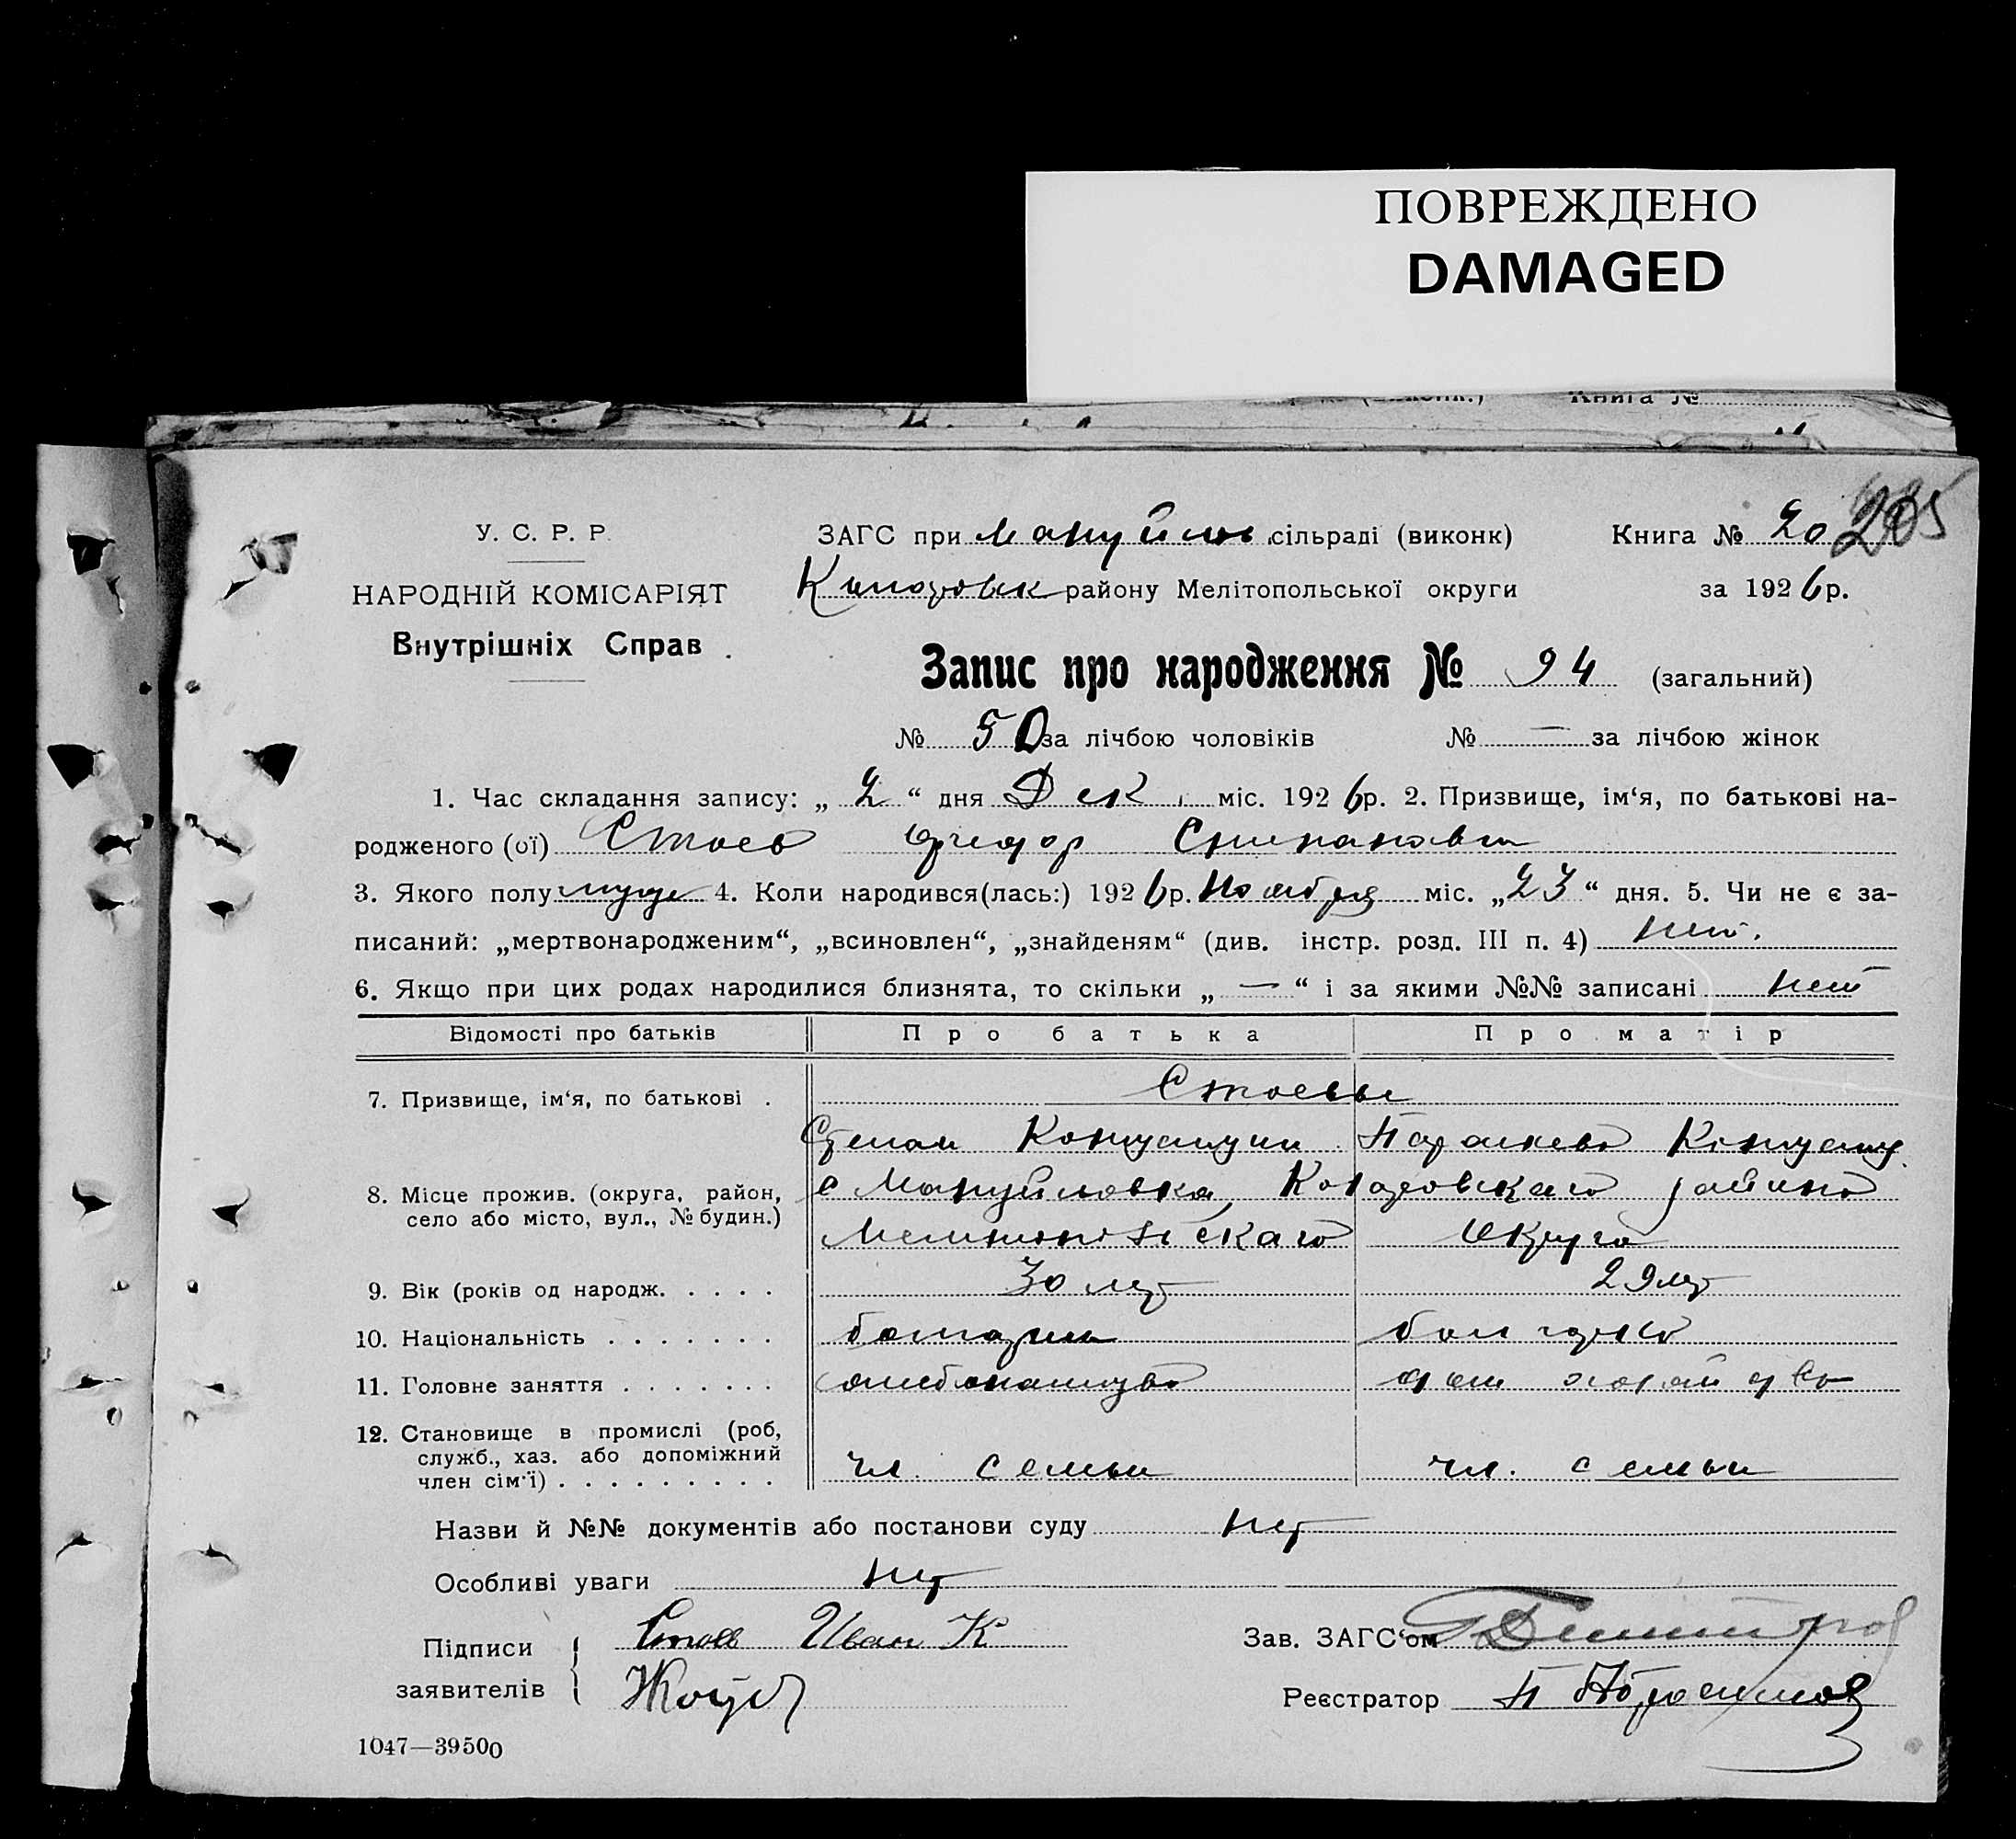 ПОВРЕЖДЕНО
DAMAGED
Книга №
205
У. С. Р. Р.
НАРОДНІЙ КОМІСАРІЯТ
Внутрішніх Справ
ЗАГС при Мануйлов сільраді (виконк)
Книга № 20
району Мелітопольської округи
за 1926 р.
Запис про народження № 94 (загальний)
№ 50 за лічбою чоловіків № — за лічбою жінок
1. Час складання запису: „ 2 “ дня Дек міс. 1926 р. 2. Призвище, ім‘я, по батькові на-
родженого (ої) Стоев Федор Степанович
3. Якого полу муж 4. Коли народився(лась:) 1926 р. Ноября міс. „23“ дня. 5. Чи не є за-
писаний: „мертвонародженим“, „всиновлен“, „знайденям“ (див. інстр. розд. III п. 4) нет.
6. Якщо при цих родах народилися близнята, то скільки „ — “ і за якими №№ записані нет
Відомості про батьків Про батька Про матір
7. Призвище, ім‘я, по батькові . Стоевы
Степан Параскева
8. Місце прожив. (округа, район, село або місто, вул., № будин.) с Мануйловка, Коларовскаго района
Мелитопольскаго Округа
9. Вік (років од народж. . . . . 30 лет 29 лет
10. Національність . . . . . . . болгарин болгарка
11. Головне заняття . . . . . . . хлебопашество дом хозяйство
12. Становище в промислі (роб, служб., хаз. або допоміжний член сім‘ї) . . . . . . . . . чл. семьи чл. семьи
Назви й №№ документів або постанови суду нет
Особливі уваги нет
Підписи заявителів Стоев Иван К
Зав. ЗАГС‘ом Димитров
Реєстратор П
1047—39500